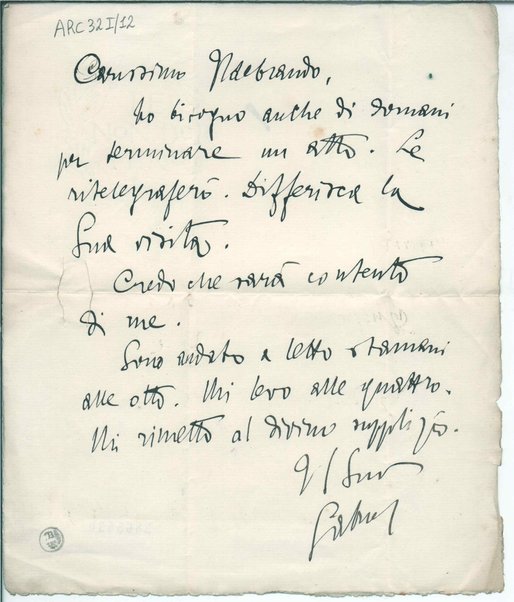 ARC32I/12
Carissimo Ildebrando,
ho bisogno anche di domani
per terminare un atto. Le
ritelegraferò. Differisca la
Sua visita.
Credo che sarà contento
di me.
Sono andato a letto stamani
alle otto. Mi levo alle quattro.
Mi rimetto al divino supplizio.
Il Suo
Gabriel